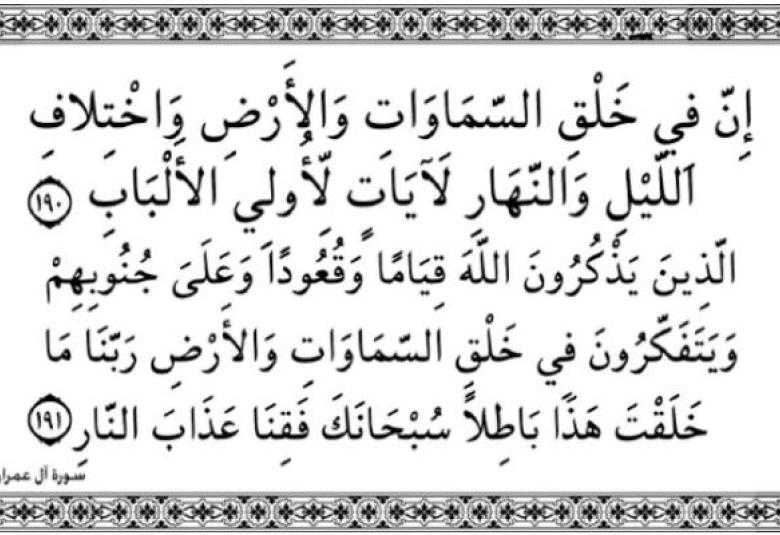 إِنَّ فِي خَلْقِ السَّمَاوَاتِ وَالأَرْضِ وَاخْتِلافِ
اللَّيْلِ وَالنَّهَارِ لَآيَاتٍ لِّأُولِي الأَلْبَابِ ١٩٠
الَّذِينَ يَذْكُرُونَ اللَّهَ قِيَامًا وَقُعُودًا وَعَلَىَ جُنُوبِهِمْ
وَيَتَفَكَّرُونَ فِي خَلْقِ السَّمَاوَاتِ وَالأَرْضِ رَبَّنَا مَا
خَلَقْتَ هَذَا بَاطِلاً سُبْحَانَكَ فَقِنَا عَذَابَ النَّارِ ١٩١
سورة آل عمرا